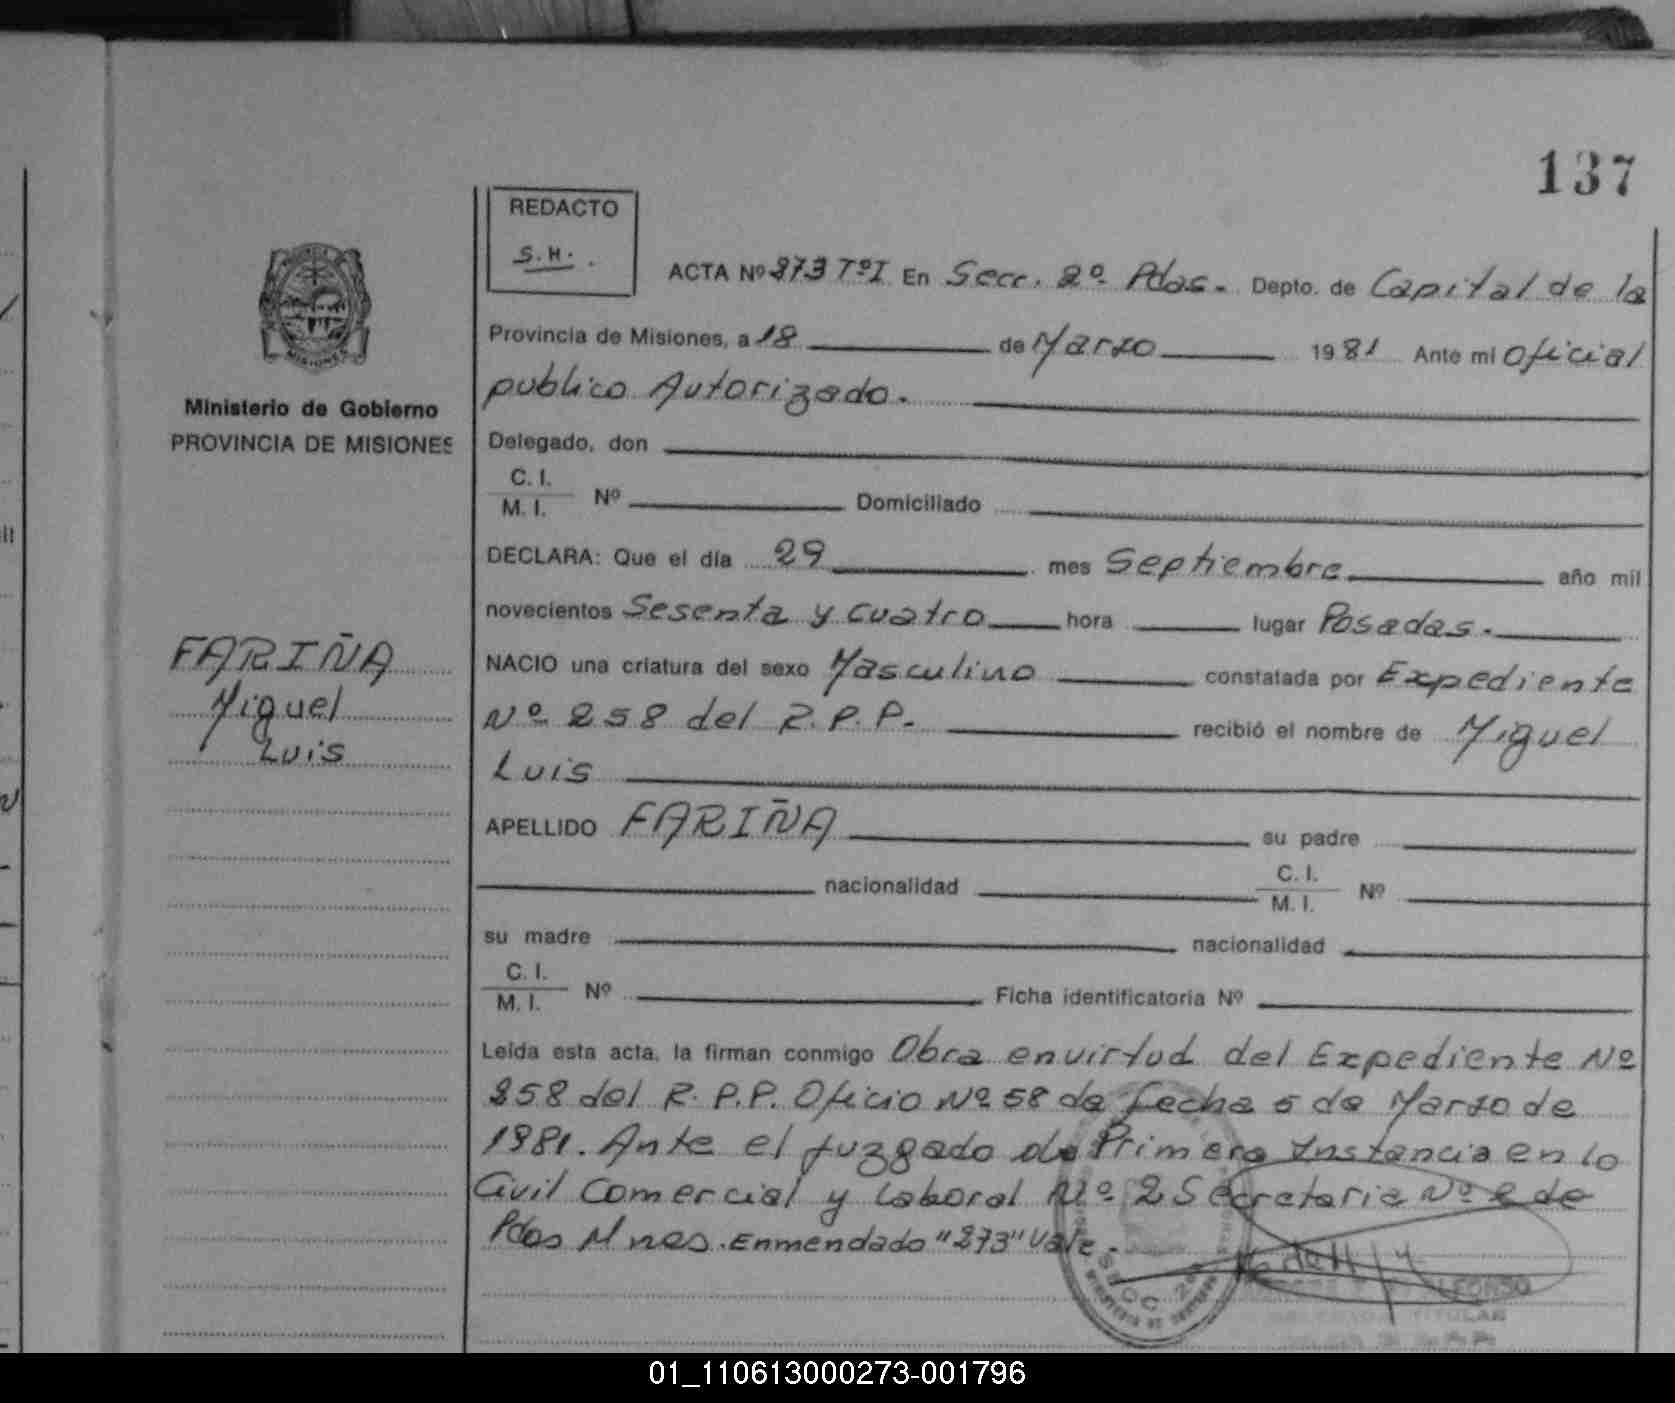 137
REDACTO
S.H.
ACTA Nº 273 TºI En Secc. 2º Pdas. Depto. de Capital de la
Provincia de Misiones, a 18 de Marzo 1981 Ante mi Oficial
publico Autorizado.
Ministerio de Gobierno
PROVINCIA DE MISIONES
Delegado, don
C. I.
M. I. Nº Domiciliado
DECLARA: Que el día 29 mes Septiembre año mil
novecientos Sesenta y cuatro hora lugar Posadas.
FARIÑA
Miguel
Luis
NACIO una criatura del sexo Masculino constatada por Expediente
Nº 258 del R.P.P. recibió el nombre de Miguel
Luis
APELLIDO FARIÑA su padre
nacionalidad C. I.
M. I. Nº
su madre nacionalidad
C. I.
M. I. Nº Ficha identificatoria Nº
Leída esta acta, la firman conmigo Obra en virtud del Expediente Nº
258 del R.P.P. Oficio Nº 58 de fecha 5 de Marzo de
1981. Ante el Juzgado de Primera Instancia en lo
Civil Comercial y Laboral Nº 2 Secretaria Nº 2 de
Pdas Mnes. Enmendado "273" Vale.
TITULAR
01_110613000273-001796